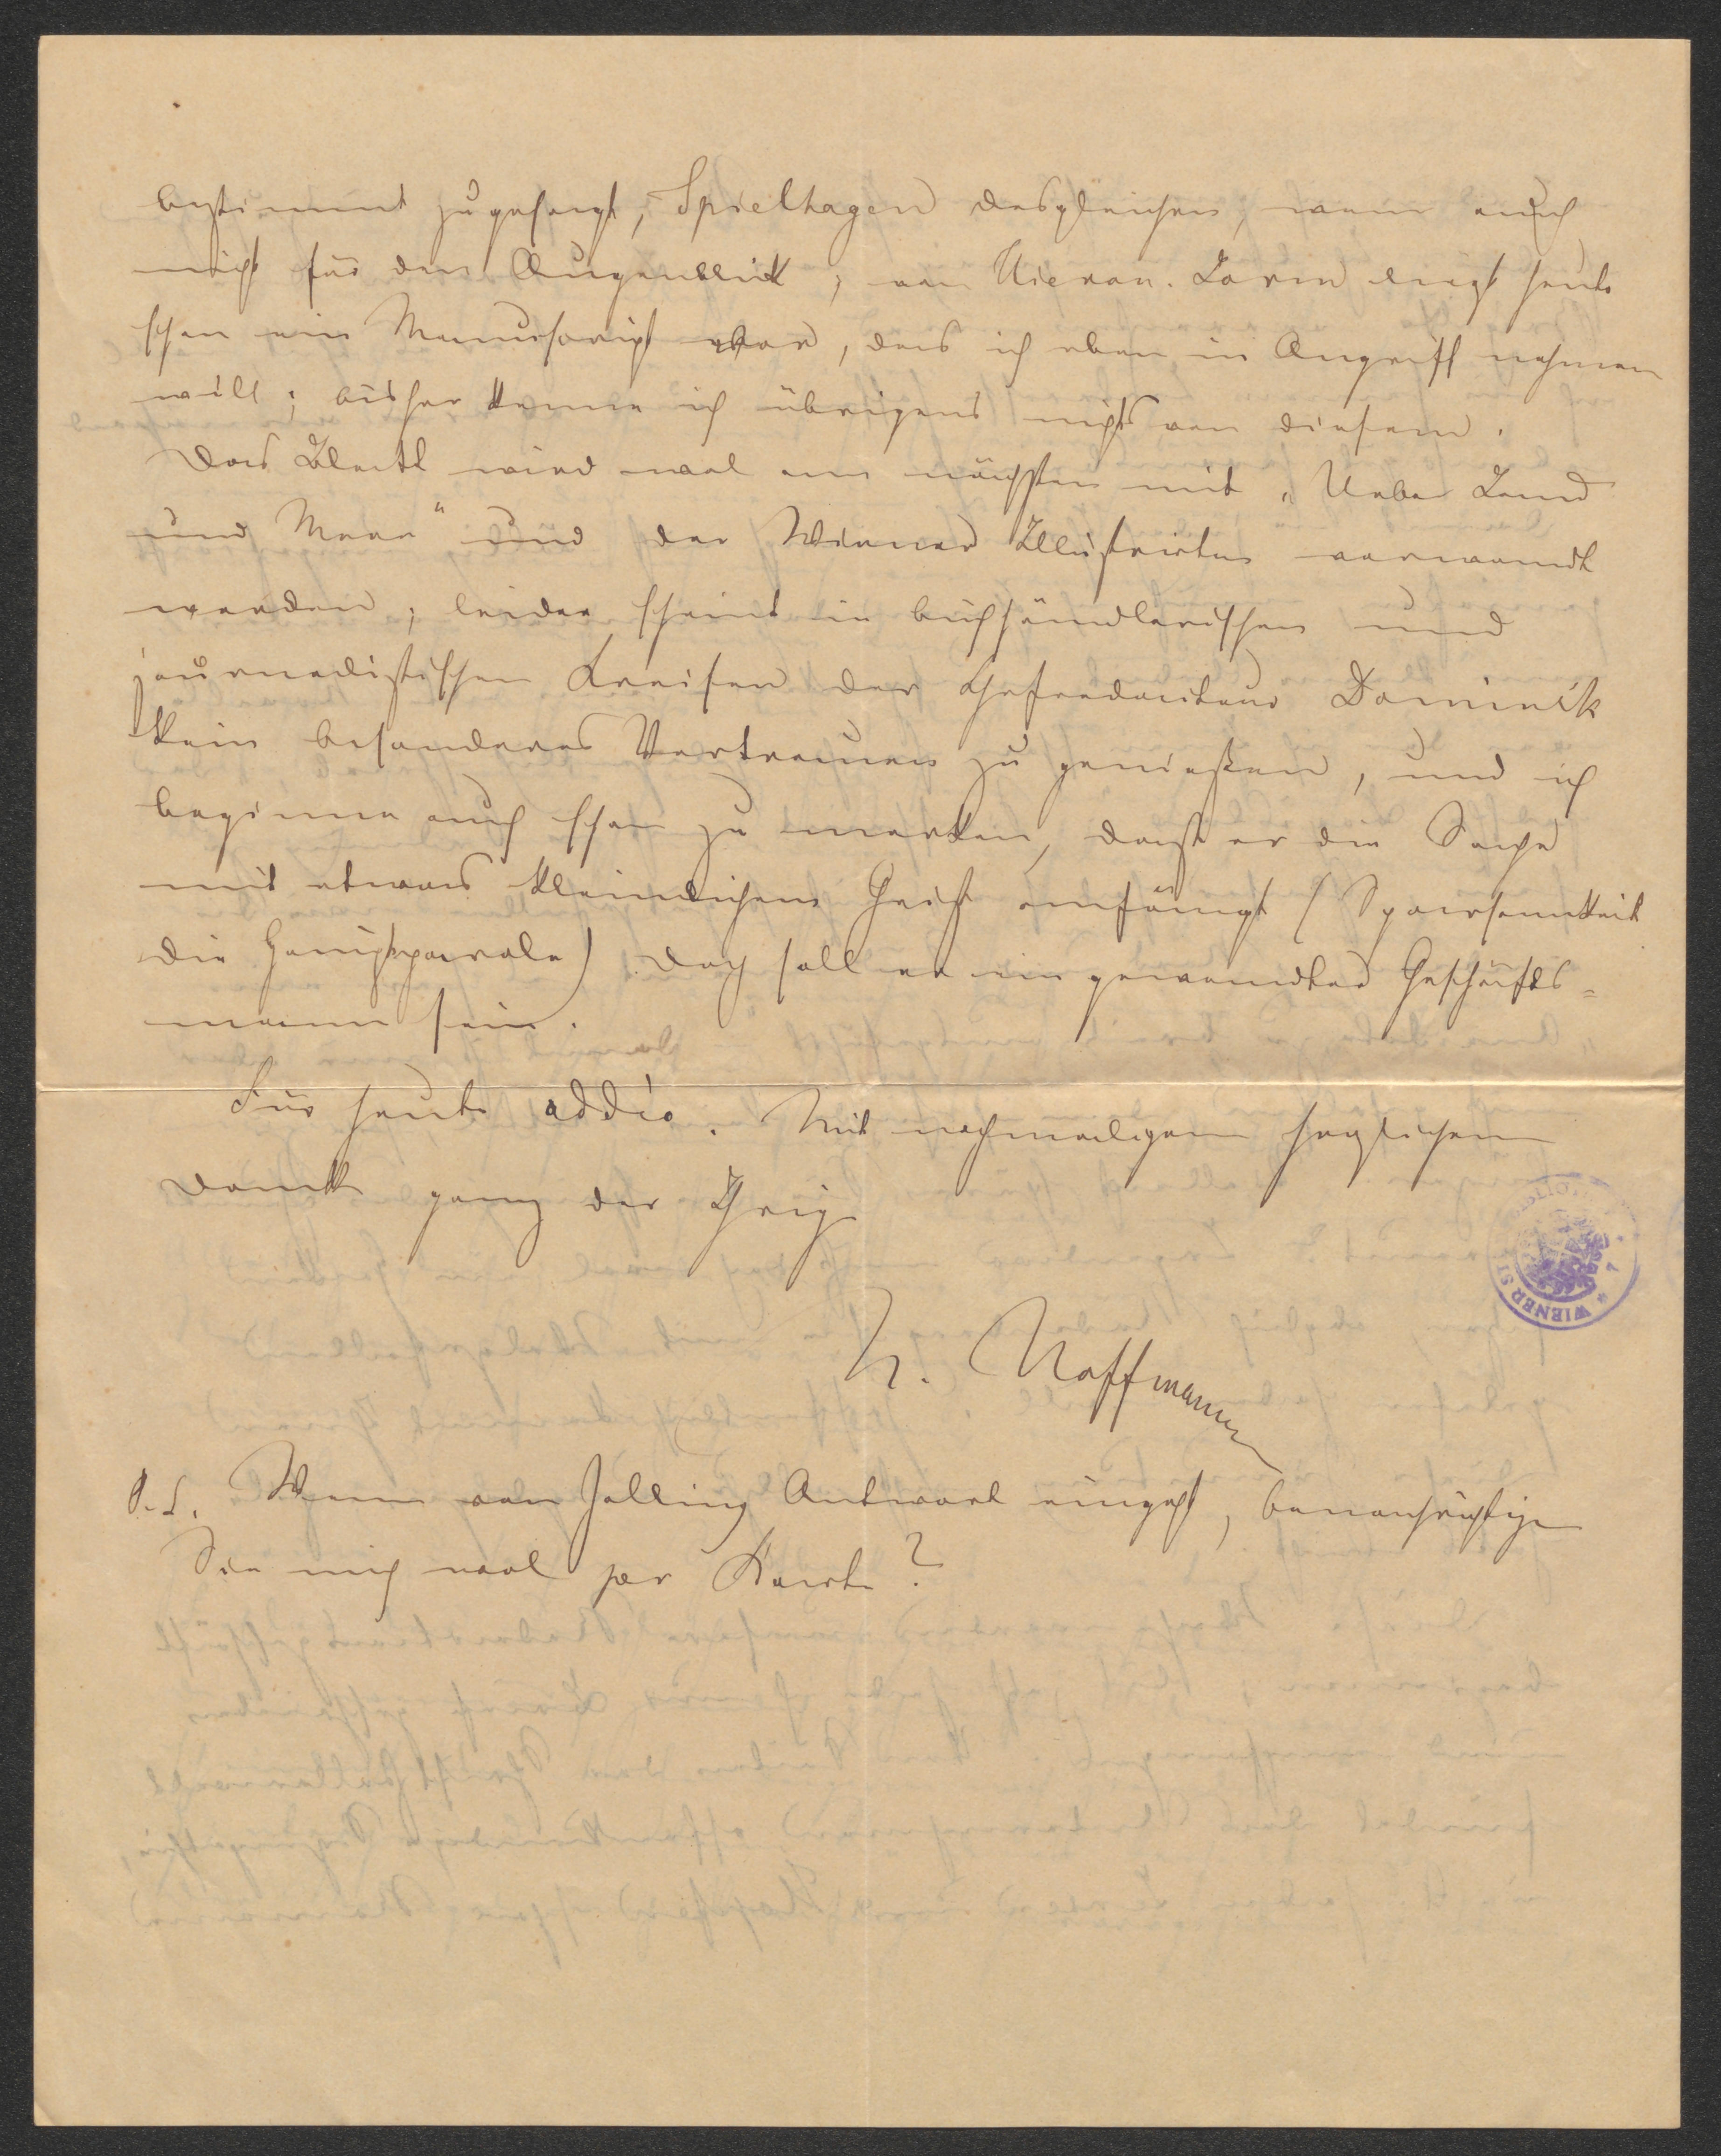 bestimmt zugesagt, Spielhagen desgleichen, wenn auch
nicht für den Augenblick; von Hieron. Lorm liegt heute
schon ein Manuscript vor, das ich eben in Angriff nehmen
will; bisher kenne ich übrigens nichts von diesem.
Das Blatt wird wol am nächsten mit „Ueber Land
und Meer" und der Wiener Illustrirten verwandt
werden; leider scheint in buchhändlerischen und
journalistischen Kreisen der Chefredacteur Dominik
kein besonderes Vertrauen zu genießen, und ich
beginne auch schon zu merken, dass er die Sache
mit etwas kleinlichem Geist anfängt (Sparsamkeit
die Hauptparole). Doch soll er ein gewandter Geschäfts=
mann sein.
Für heute addio. Mit nochmaligem herzlichem
Dank ganz der Ihrige
H. Hoffmann
P.S. Wenn von Antwort eingeht, benachrichtigen
Sie mich wol per Karte?
WIENER